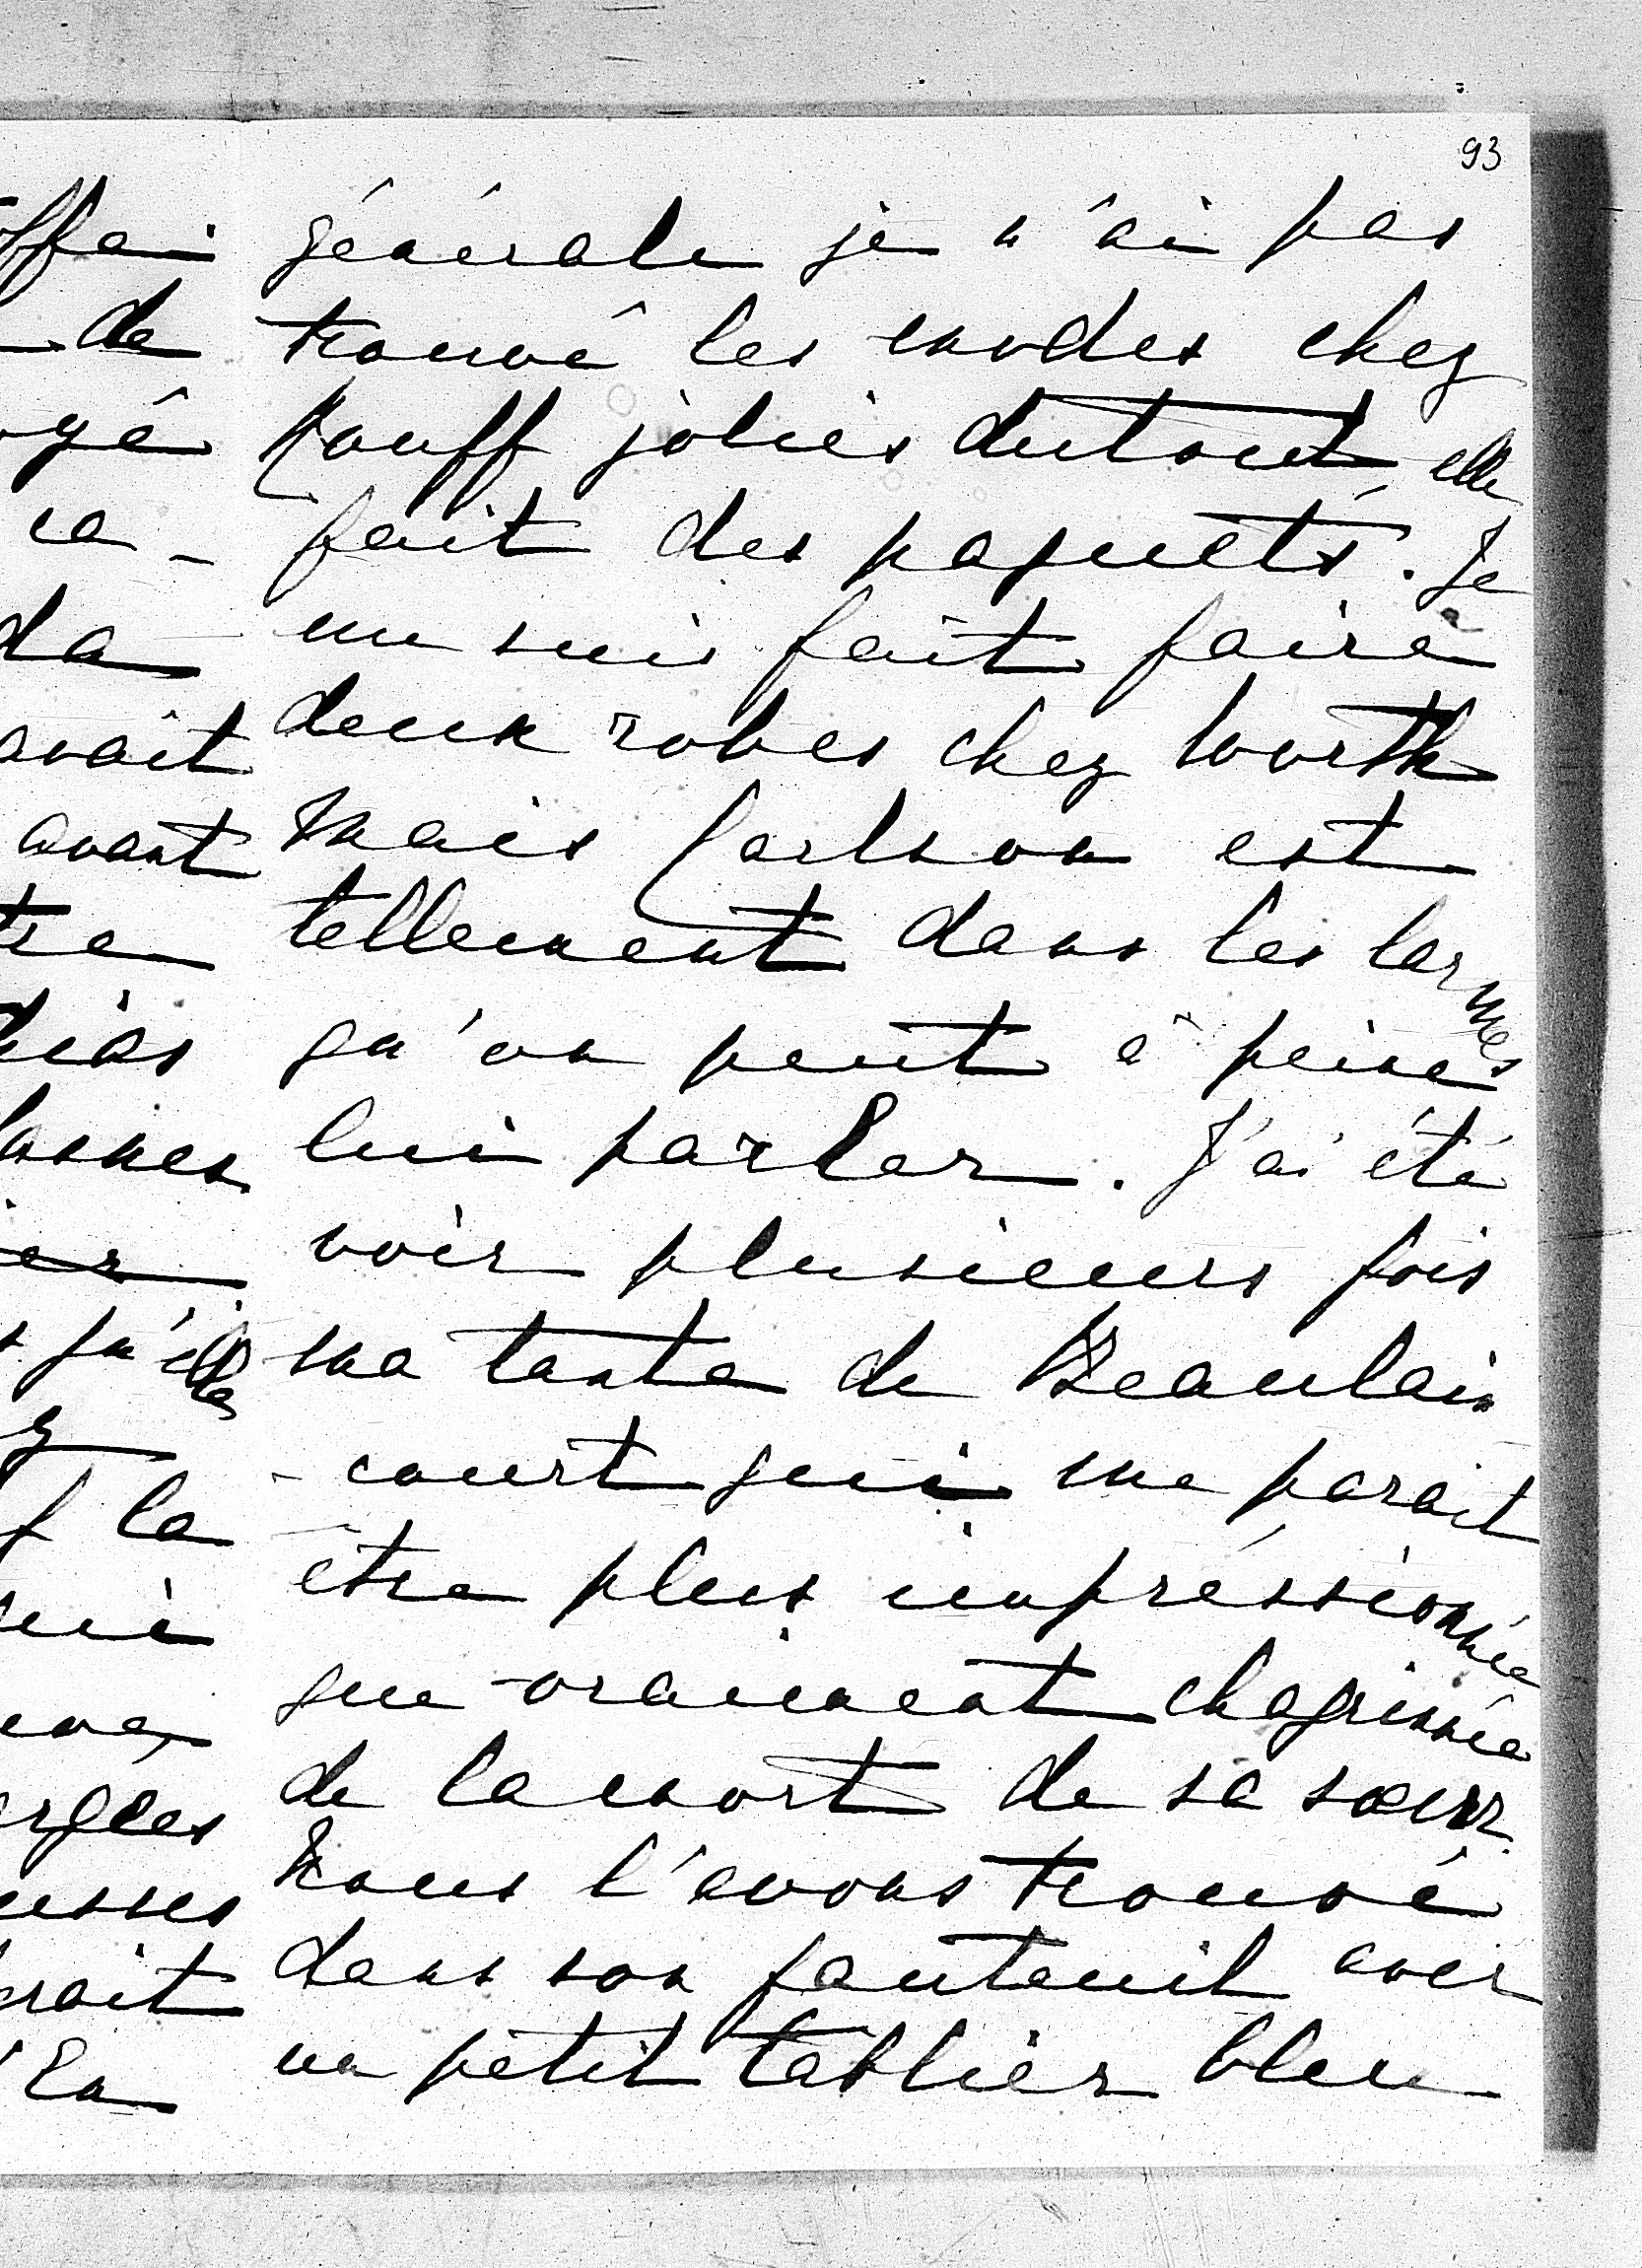 93
générale je n'ai pas
trouvé les modes chez
Pouff jolies dutout, elle
fait des paquets. Je
me suis fait faire
deux robes chez Worth
mais Carlson est
tellement dans les larmes
qu'on peut à peine
lui parler. J'ai été
voir plusieurs fois
ma tante de Beaulain
-court qui me parait
être plus impréssionnée
que vraiment chagrinée
de la mort de sa sœur.
Nous l'avons trouvé
dans son fauteuil avec
un petit tablier bleu